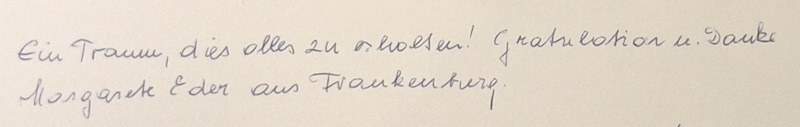 Ein Traum, dies alles zu erhalten! Gratulation u. Danke
Margarete Eder aus Frankenburg.